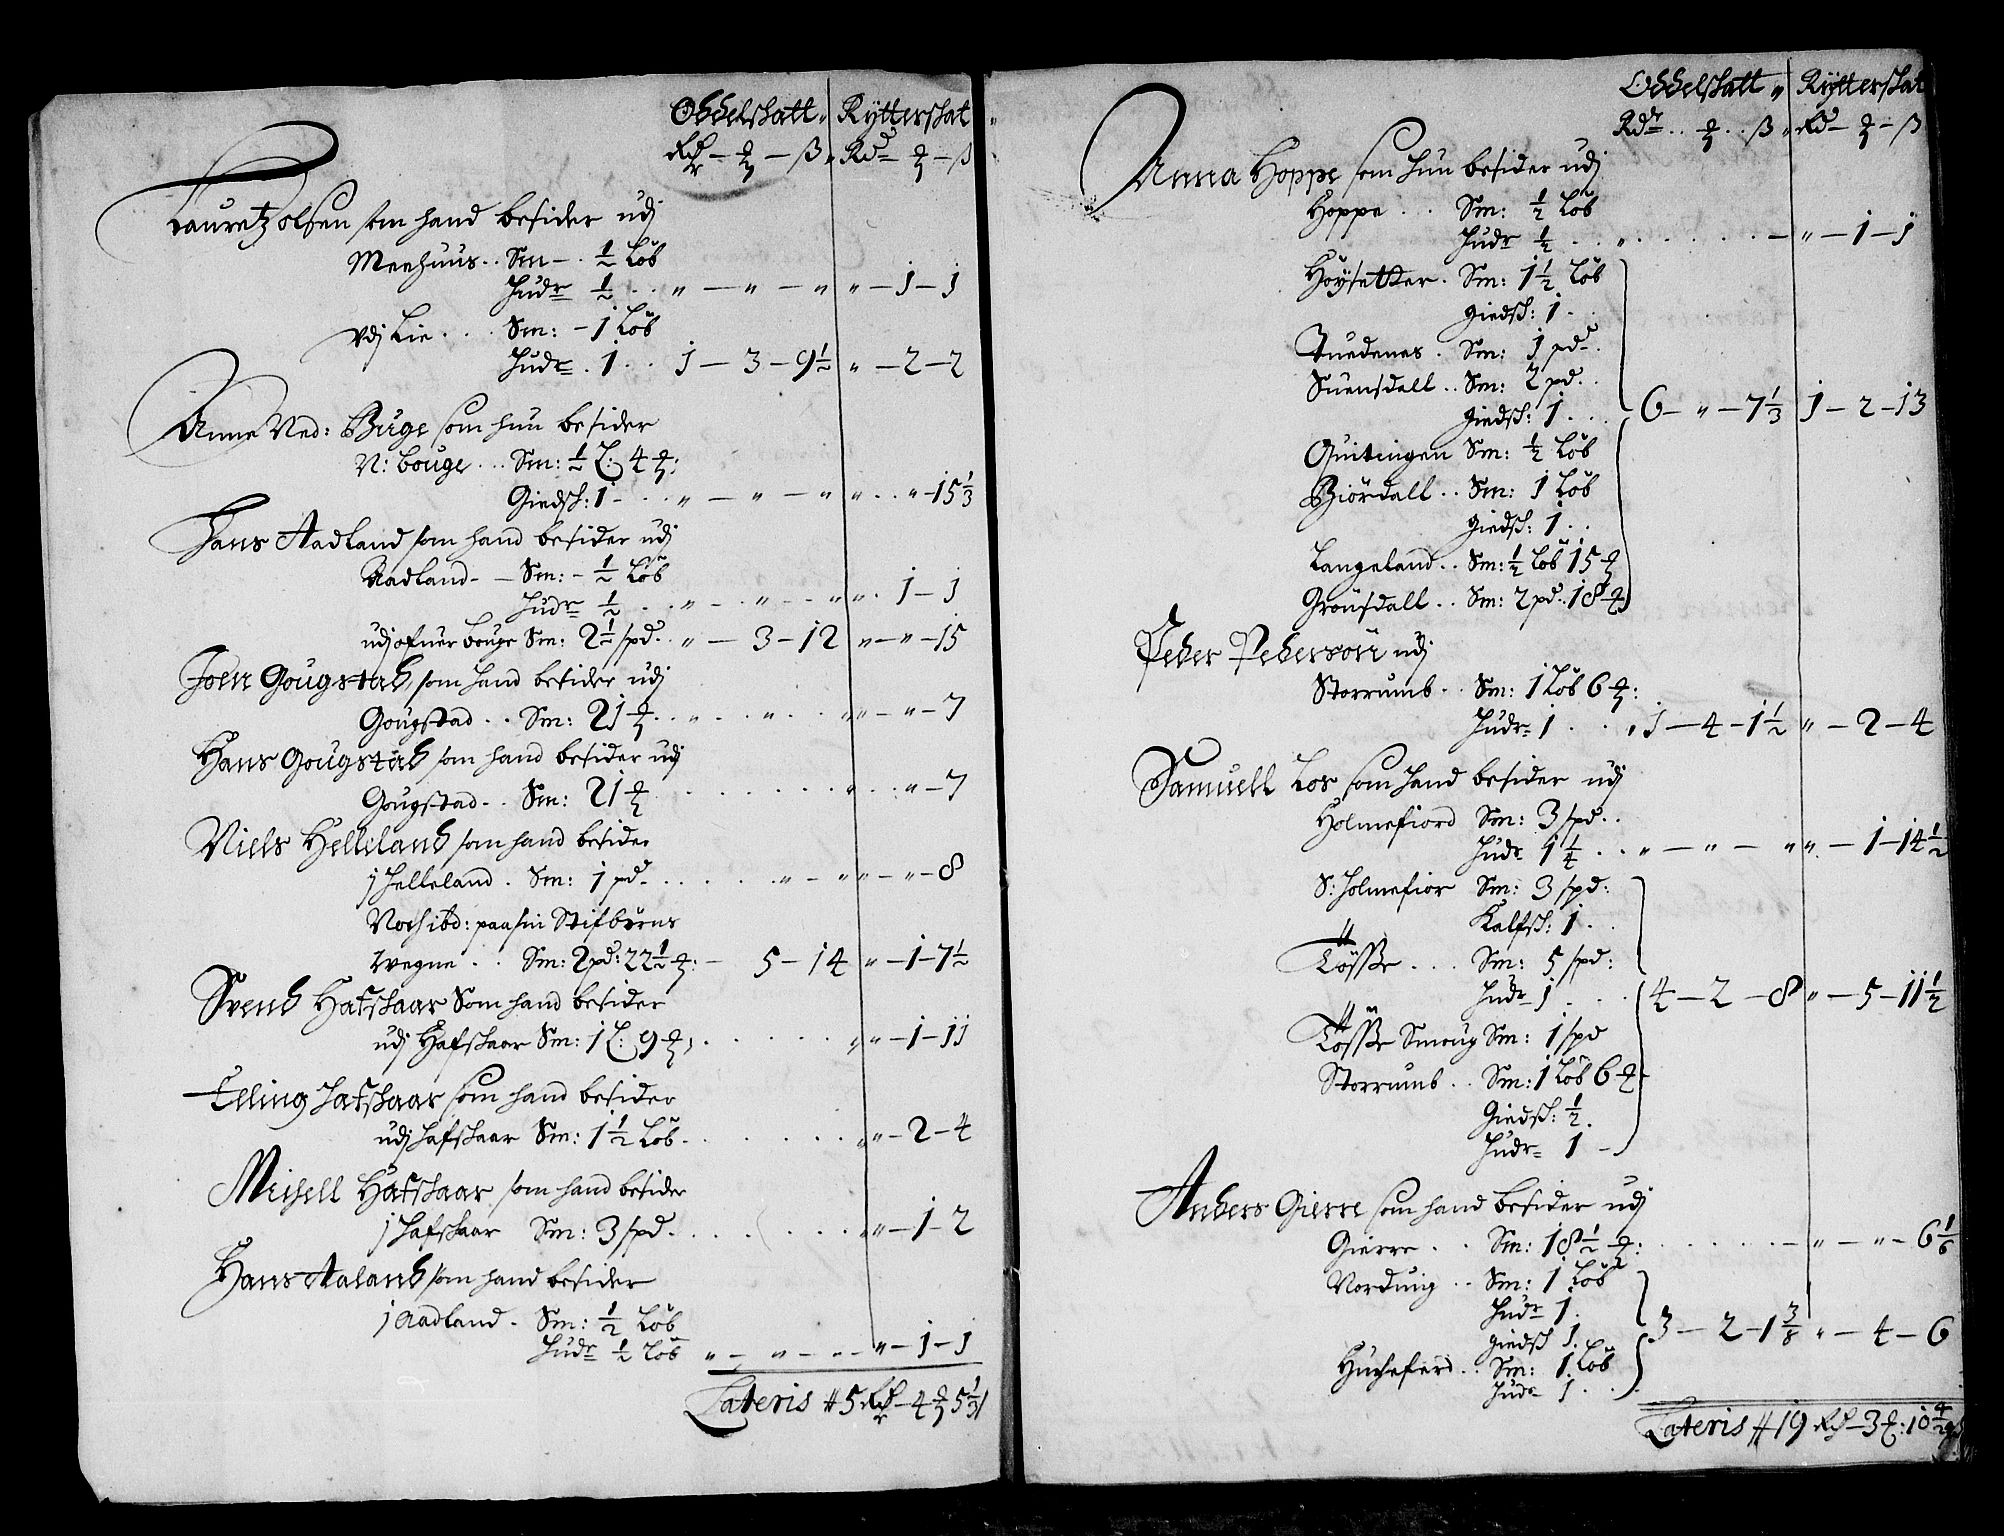 Oddelskatt „ Rytterskat „
Rdr – ℳ – ß „ Rd – ℳ – ß
Lauretz olsen som hand besider udj
Meehuus .. Sm – . ½ Löb
Hudr ½ . . „ – „ – „ „ – j – j
vdj Lie . . . Sm: – j Löb
Hudr . 1 . . j – 3 – 9½ „ – 2 – 2
Anne Ned: Buge som hun besider
N: bouge . . Sm: ½ L: 4 ℳ:
Giedsk: 1 – . . „ – „ – „ „ . . „ – 15⅓
Hans Aadland som hand besider udj
Aadland – – Sm: – ½ Löb
Hudr ½ . . „ – . „ – . – „ „ . j – j
udj ofuer bouge Sm: 2½ spd . . „ – 3 – 12 „ – „ – 15
Joen Gougstad, som hand besider udj
Gougstad . . Sm: 21 ℳ . . „ . . „ . . „ „ – „ – 7
Hans Gougstad som hand besider udj
Gougstad . . Sm: 21 ℳ . . . . . . . „ . . „ – 7
Niels Helleland som hand besider
j Helleland . Sm: 1 pd – . . . . . „ – „ „ – „ – 8
Noch ibd: paa sin Stifbörns
Wegne . . Sm: 2 pd: 22½ ℳ: – 5 – 14 „ – 1 – 7½
Svend Hafskaar Som hand besider
udj Hafskaar Sm: 1 L: 9 ℳ; . . . . . „ „ – 1 – 11
Elling Hafskaar som hand besider
udj Hafskaar Sm: 1½ Löb . . . . . . „ „ – 2 – 4
Michell Hafskaar som hand besider
j Hafskaar Sm: 3 spd . . . . . . . „ „ – 1 – 2
Hans Aaland som hand besider
j Aadland . Sm: ½ Löb
Hudr ½ Löb „ – „ – . – „ – 1 – 1
Lateris # 5 Rdr – 4 ℳ 5⅓
Oddelskatt „ Rytterskat
Rdr . . ℳ . . ß „ Rd – ℳ – ß
Anna Hoppe som hun besider udj
Hoppe . . . Sm: ½ Löb
Hudr ½ . . „ . . . . . – „ – 1 – j
Höysetter . Sm: 1½ Löb
giedsk: 1 . . .
Tuedenes . Sm: 1 pd – .
Suensdall . . Sm: 2 pd . .
giedsk: 1 . . . 6 – „ – 7⅓ j – 2 – 13
Quitingen Sm: ½ Löb
Biördall . . Sm: 1 Löb
giedsk: 1 . .
Langeland . . Sm: ½ Löb 15 ℳ
Grousdall . . Sm: 2 pd . 18 ℳ
Peder Pedersön udj
Storrumb . . Sm: 1 Löb 6 ℳ:
Hudr 1 . . . „ j – 4 – 1½ „ – 2 – 4
Samuell Los som hand besider udj
Holmefiord Sm: 3 spd . .
Hudr 1¼ . . „ – „ – „ „ . – 1 – 14½
S: Holmefior Sm: 3 spd:
Kalfsk: 1 . .
Tösse . . . Sm: 5 spd:
Hudr 1 . . . 4 – 2 – 8 „ – 5 – 11½
Tösse Smoug Sm: 1 spd
Storrumb . . Sm: 1 Löb 6 ℳ
Giedsk: ½ .
Hudr 1 –
Anders Gierre som hand besider udj
Gierre . . Sm: 18½ ℳ: . . . . . – „ – „ – 6⅙
Norduig . . Sm: 1 Löb
Hudr 1 .
giedsk 1 . 3 – 2 – 1⅜ „ – 4 – 6
Sm: 1 Löb
Hudr 1 . . .
Lateris # 19 Rdr – 3 ℳ: 10